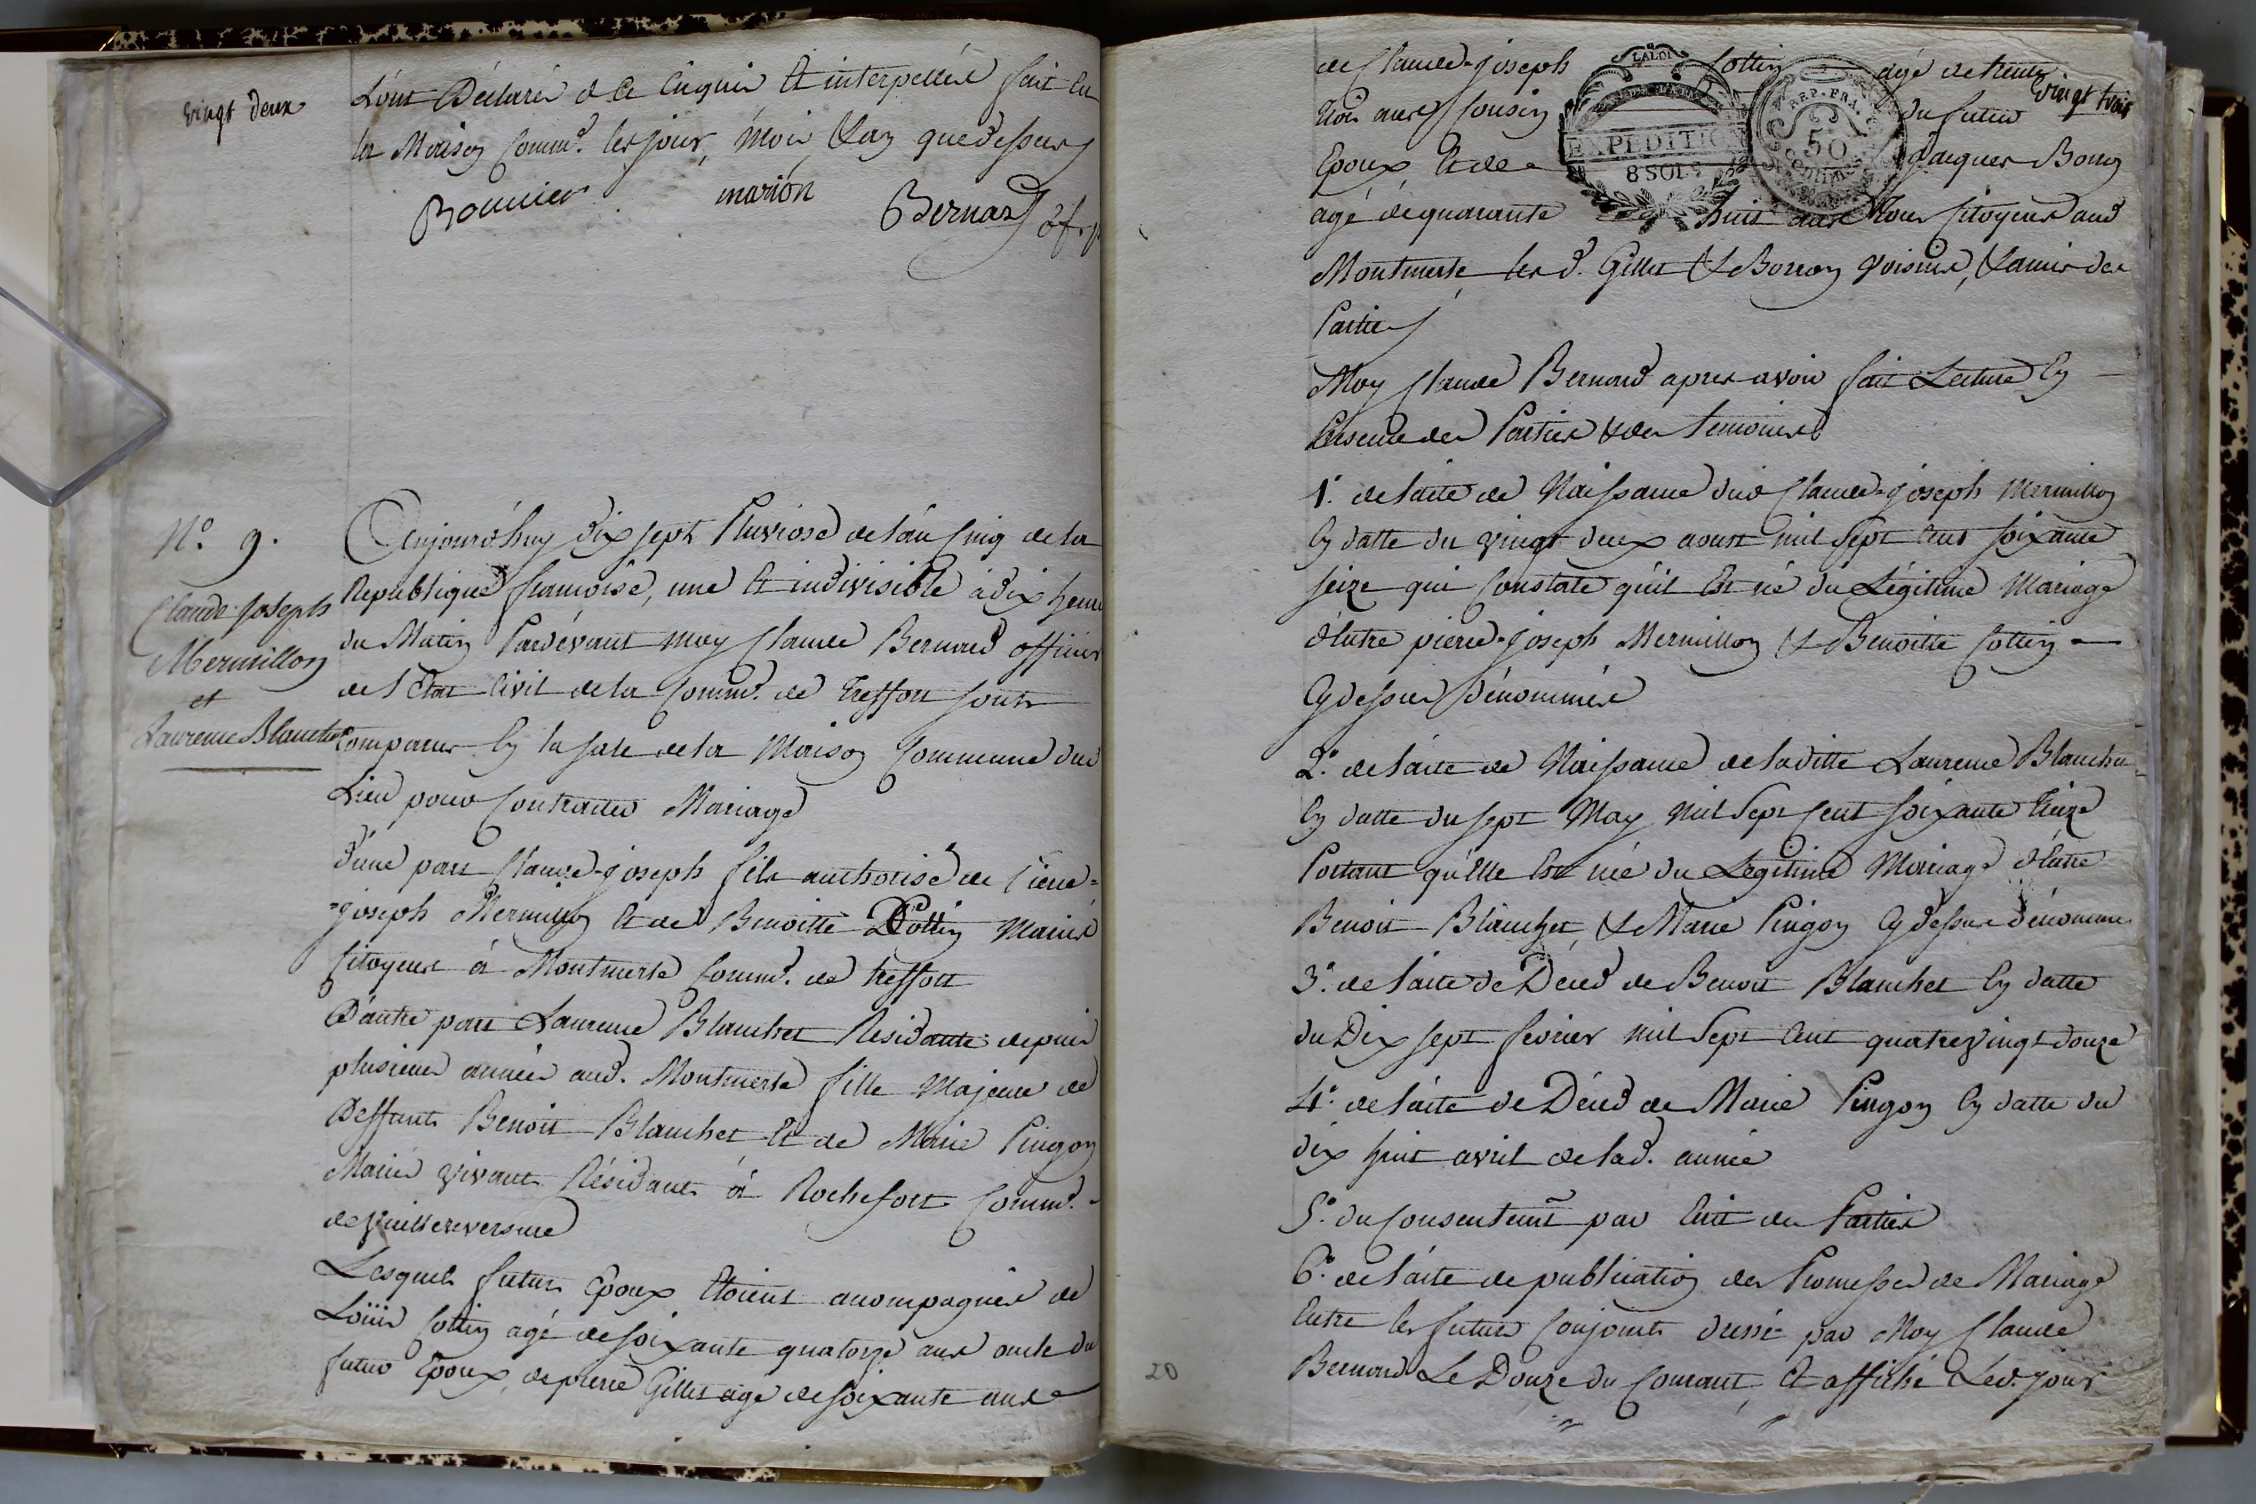 vingt deux
L'ont Déclaré de ce Enquis Et interpellés fait En
la Maison Comm.e les jour, mois & an que dessus
Bonnier marion Bernard off. p.
N.o 9.
Claude-Joseph
Mermillon
et
Laurence Blanchet
Aujourd'huy dix sept Pluviose de l'an Cinq de la
Republique francoise, une Et indivisible à dix heures
du Matin Pardevant moy Claude Bernard officier
de l'Etat Civil de la Comm.e de Treffort sont
Comparus En la sale de la Maison Commune dud
Lieu pour Contracter Mariage
d'une part Claude-joseph fils authorisé de Pierre-
-joseph Mermillon Et de Benoitte Cottin Mariés
Citoyens à Montmerle Comm.e de treffort
D'autre part Laurence Blanchet Residante depuis
plusieurs années aud. Montmerle fille Majeure de
Deffunts Benoit Blanchet Et de Marie Pingon
Mariés vivants Résidants à Rochefort Comm.e
de Villereversure
Lesquels futurs Epoux Etoient acompagnés de
Loüis Cottin agé de soixante quatorze ans oncle du
futur Epoux, de pierre Gillet agé de soixante ans
vingt trois
de Claude-joseph Cottin agé de trente
trois ans Cousin du futur
Epoux Et de Jacques Borron
agé de quarante huit ans Tous Citoyens aud
Montmerle les d. Gillet & Borron voisins, & amis des
Parties
LA LOI
EXPEDITION
8 SOLS
REP. FRA.
50
CENTIMES
Moy Claude Bernard apres avoir fait Lecture En
Presence des Parties & des temoins
1.o de l'acte de Naissance dud Claude-joseph Mermillon
En datte du vingt deux aoust mil sept cent soixante
seize qui Constate qu'il Est né du Légitime Mariage
d'Entre pierre-joseph Mermillon & Benoitte Cottin
Cy dessus dénommés
2.o de l'acte de Naissance de laditte Laurence Blanchet
En datte du sept May mil sept Cent soixante treize
Portant qu'Elle Est née du Légitime Mariage d'Entre
Benoit Blanchet, & Marie Pingon Cy dessus dénommés
3.o de l'acte de Décès de Benoit Blanchet En datte
du Dix sept fevrier mil sept Cent quatrevingt douze
4.o de l'acte de Décès de Marie Pingon En datte du
dix huit avril de lad. année
5.o du Consentem.t par Ecrit des Parties
6.o de l'acte de publication des Promesses de Mariage
Entre les futurs Conjoints dressé par Moy Claude
Bernard Le Douze du Courant, Et affiché Led. jour
20